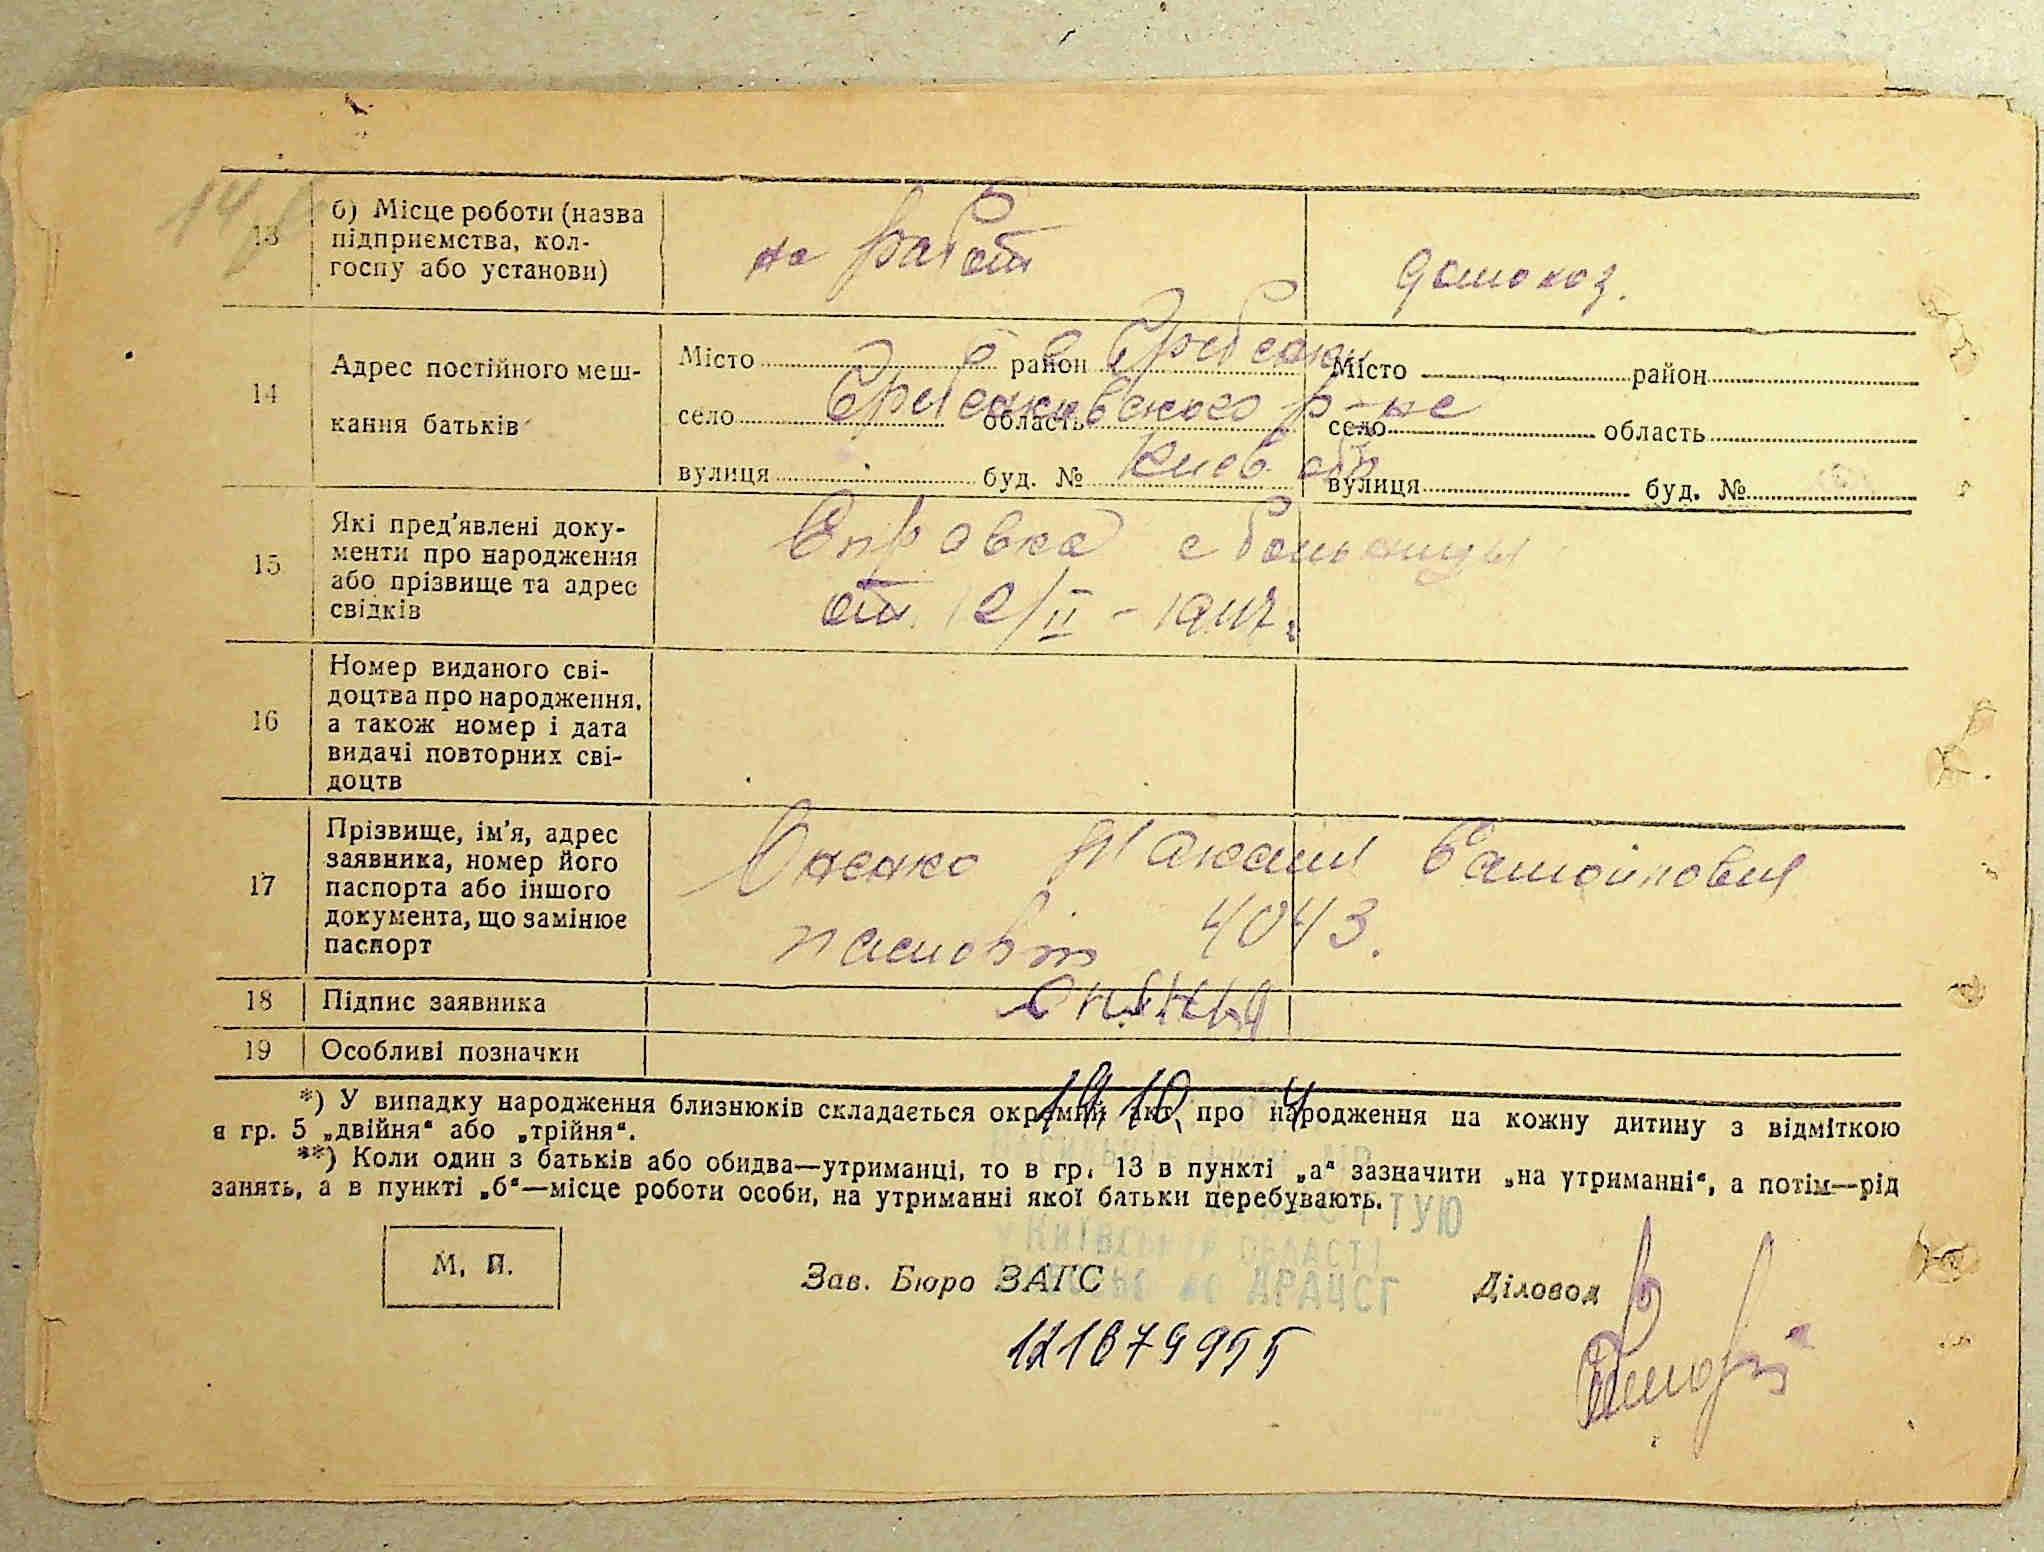 14
13 б) Місце роботи (назва підприємства, колгоспу або установи)
на работ
домохоз.
14 Адрес постійного мешкання батьків
Місто район Місто район
село область село область
вулиця буд. № Киев обл вулиця буд. №
15 Які пред'явлені документи про народження або прізвище та адрес свідків
Справка с больницы
от 12/II - 1947.
16 Номер виданого свідоцтва про народження, а також номер і дата видачі повторних свідоцтв
17 Прізвище, ім'я, адрес заявника, номер його паспорта або іншого документа, що замінює паспорт
паспорт 4043.
18 Підпис заявника
19 Особливі позначки
*) У випадку народження близнюків складається окремий акт про народження на кожну дитину з відміткою
в гр. 5 „двійня“ або „трійня“.
**) Коли один з батьків або обидва—утриманці, то в гр. 13 в пункті „а“ зазначити „на утриманні“, а потім—рід
занять, а в пункті „б“—місце роботи особи, на утриманні якої батьки перебувають.
Київській області
ДРАЦСГ
М. П.
Зав. Бюро ЗАГС
Діловод